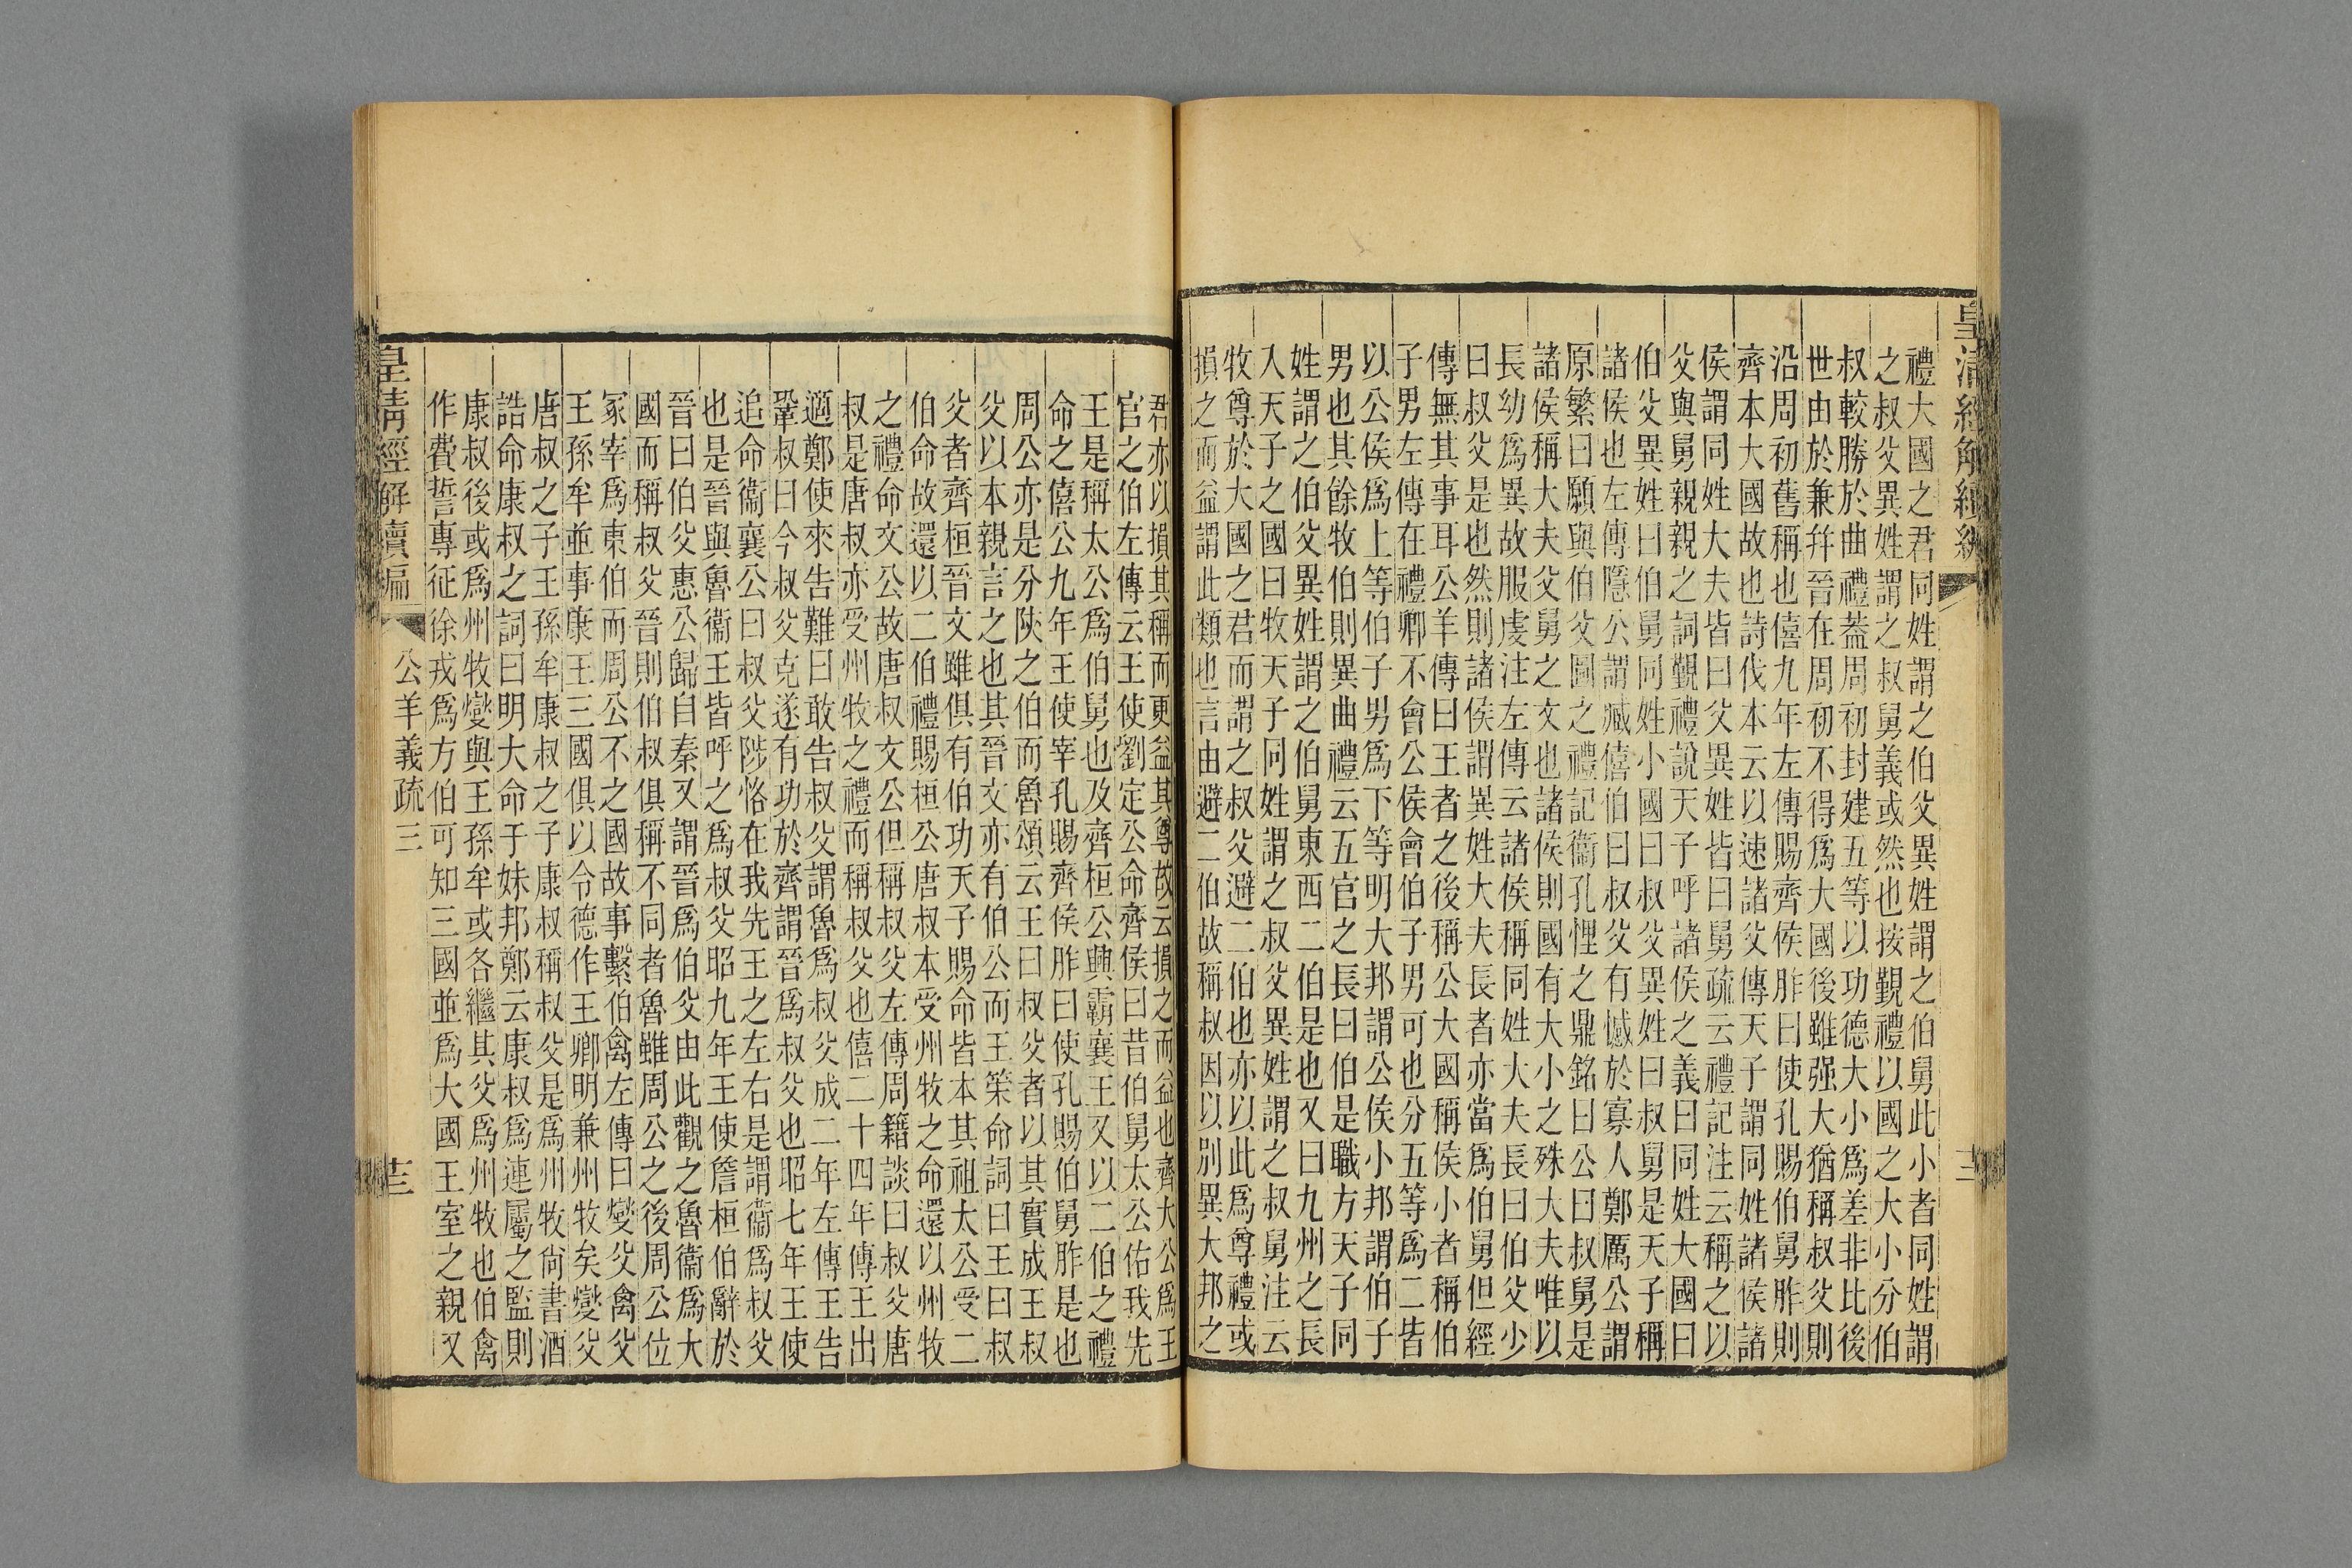 皇清經解續編
禮大國之君同姓謂之伯父異姓謂之伯舅此小者同姓謂
之叔父異姓謂之叔舅義或然也按覲禮以國之大小分伯
叔較勝於曲禮葢周初封建五等以功德大小爲差非比後
世由於兼并晉在周初不得爲大國後雖强大猶稱叔父則
沿周初舊稱也僖九年左傳賜齊侯胙曰使孔賜伯舅胙則
齊本大國故也詩伐木云以速諸父傳天子謂同姓諸侯諸
侯謂同姓大夫皆曰父異姓皆曰舅疏云禮記注云稱之以
父與舅親親之詞覲禮說天子呼諸侯之義曰同姓大國曰
伯父異姓曰伯舅同姓小國曰叔父異姓曰叔舅是天子稱
諸侯也左傳隱公謂臧僖伯曰叔父有憾於寡人鄭厲公謂
原繁曰願與伯父圖之禮記衞孔悝之鼎銘曰公曰叔舅是
諸侯稱大夫父舅之文也諸侯則國有大小之殊大夫唯以
長幼爲異故服虔注左傳云諸侯稱同姓大夫長曰伯父少
曰叔父是也然則諸侯謂異姓大夫長者亦當爲伯舅但經
傳無其事耳公羊傳曰王者之後稱公大國稱侯小者稱伯
子男左傳在禮卿不會公侯會伯子男可也分五等爲二皆
以公侯爲上等伯子男爲下等明大邦謂公侯小邦謂伯子
男也其餘牧伯則異曲禮云五官之長曰伯是職方天子同
姓謂之伯父異姓謂之伯舅東西二伯是也又曰九州之長
入天子之國曰牧天子同姓謂之叔父異姓謂之叔舅注云
牧尊於大國之君而謂之叔父避二伯也亦以此爲尊禮或
損之而益謂此類也言由避二伯故稱叔因以別異大邦之
君亦以損其稱而更益其尊故云損之而益也齊大公爲王
官之伯左傳云王使劉定公命齊侯曰昔伯舅太公佑我先
王是稱太公爲伯舅也及齊桓公興霸襄王又以二伯之禮
命之僖公九年王使宰孔賜齊侯胙曰使孔賜伯舅胙是也
周公亦是分陝之伯而魯頌云王曰叔父者以其實成王叔
父以本親言之也其晉文亦有伯公而王䇿命詞曰王曰叔
父者齊桓晉文雖俱有伯功天子賜命皆本其祖太公受二
伯命故還以二伯禮賜桓公唐叔本受州牧之命還以州牧
之禮命文公故唐叔文公但稱叔父左傳周籍談曰叔父唐
叔是唐叔亦受州牧之禮而稱叔父也僖二十四年傳王出
適鄭使來告難曰敢告叔父謂魯爲叔父成二年左傳王告
鞏叔曰今叔父克遂有功於齊謂晉爲叔父也昭七年王使
追命衞襄公曰叔父陟恪在我先王之左右是謂衞爲叔父
也是晉與魯衞王皆呼之爲叔父昭九年王使詹桓伯辭於
晉曰伯父惠公歸自秦又謂晉爲伯父由此觀之魯衞爲大
國而稱叔父晉則伯叔俱稱不同者魯雖周公之後周公位
冢宰爲東伯而周公不之國故事繫伯禽左傳曰燮父禽父
王孫牟並事康王三國俱以令德作王卿明兼州牧矣燮父
唐叔之子王孫牟康叔之子康叔稱叔父是爲州牧尙書酒
誥命康叔之詞曰明大命于妹邦鄭云康叔爲連屬之監則
康叔後或爲州牧燮與王孫牟或各繼其父爲州牧也伯禽
作費誓專征徐戎爲方伯可知三國並爲大國王室之親又
皇淸經解續編
公羊義疏三